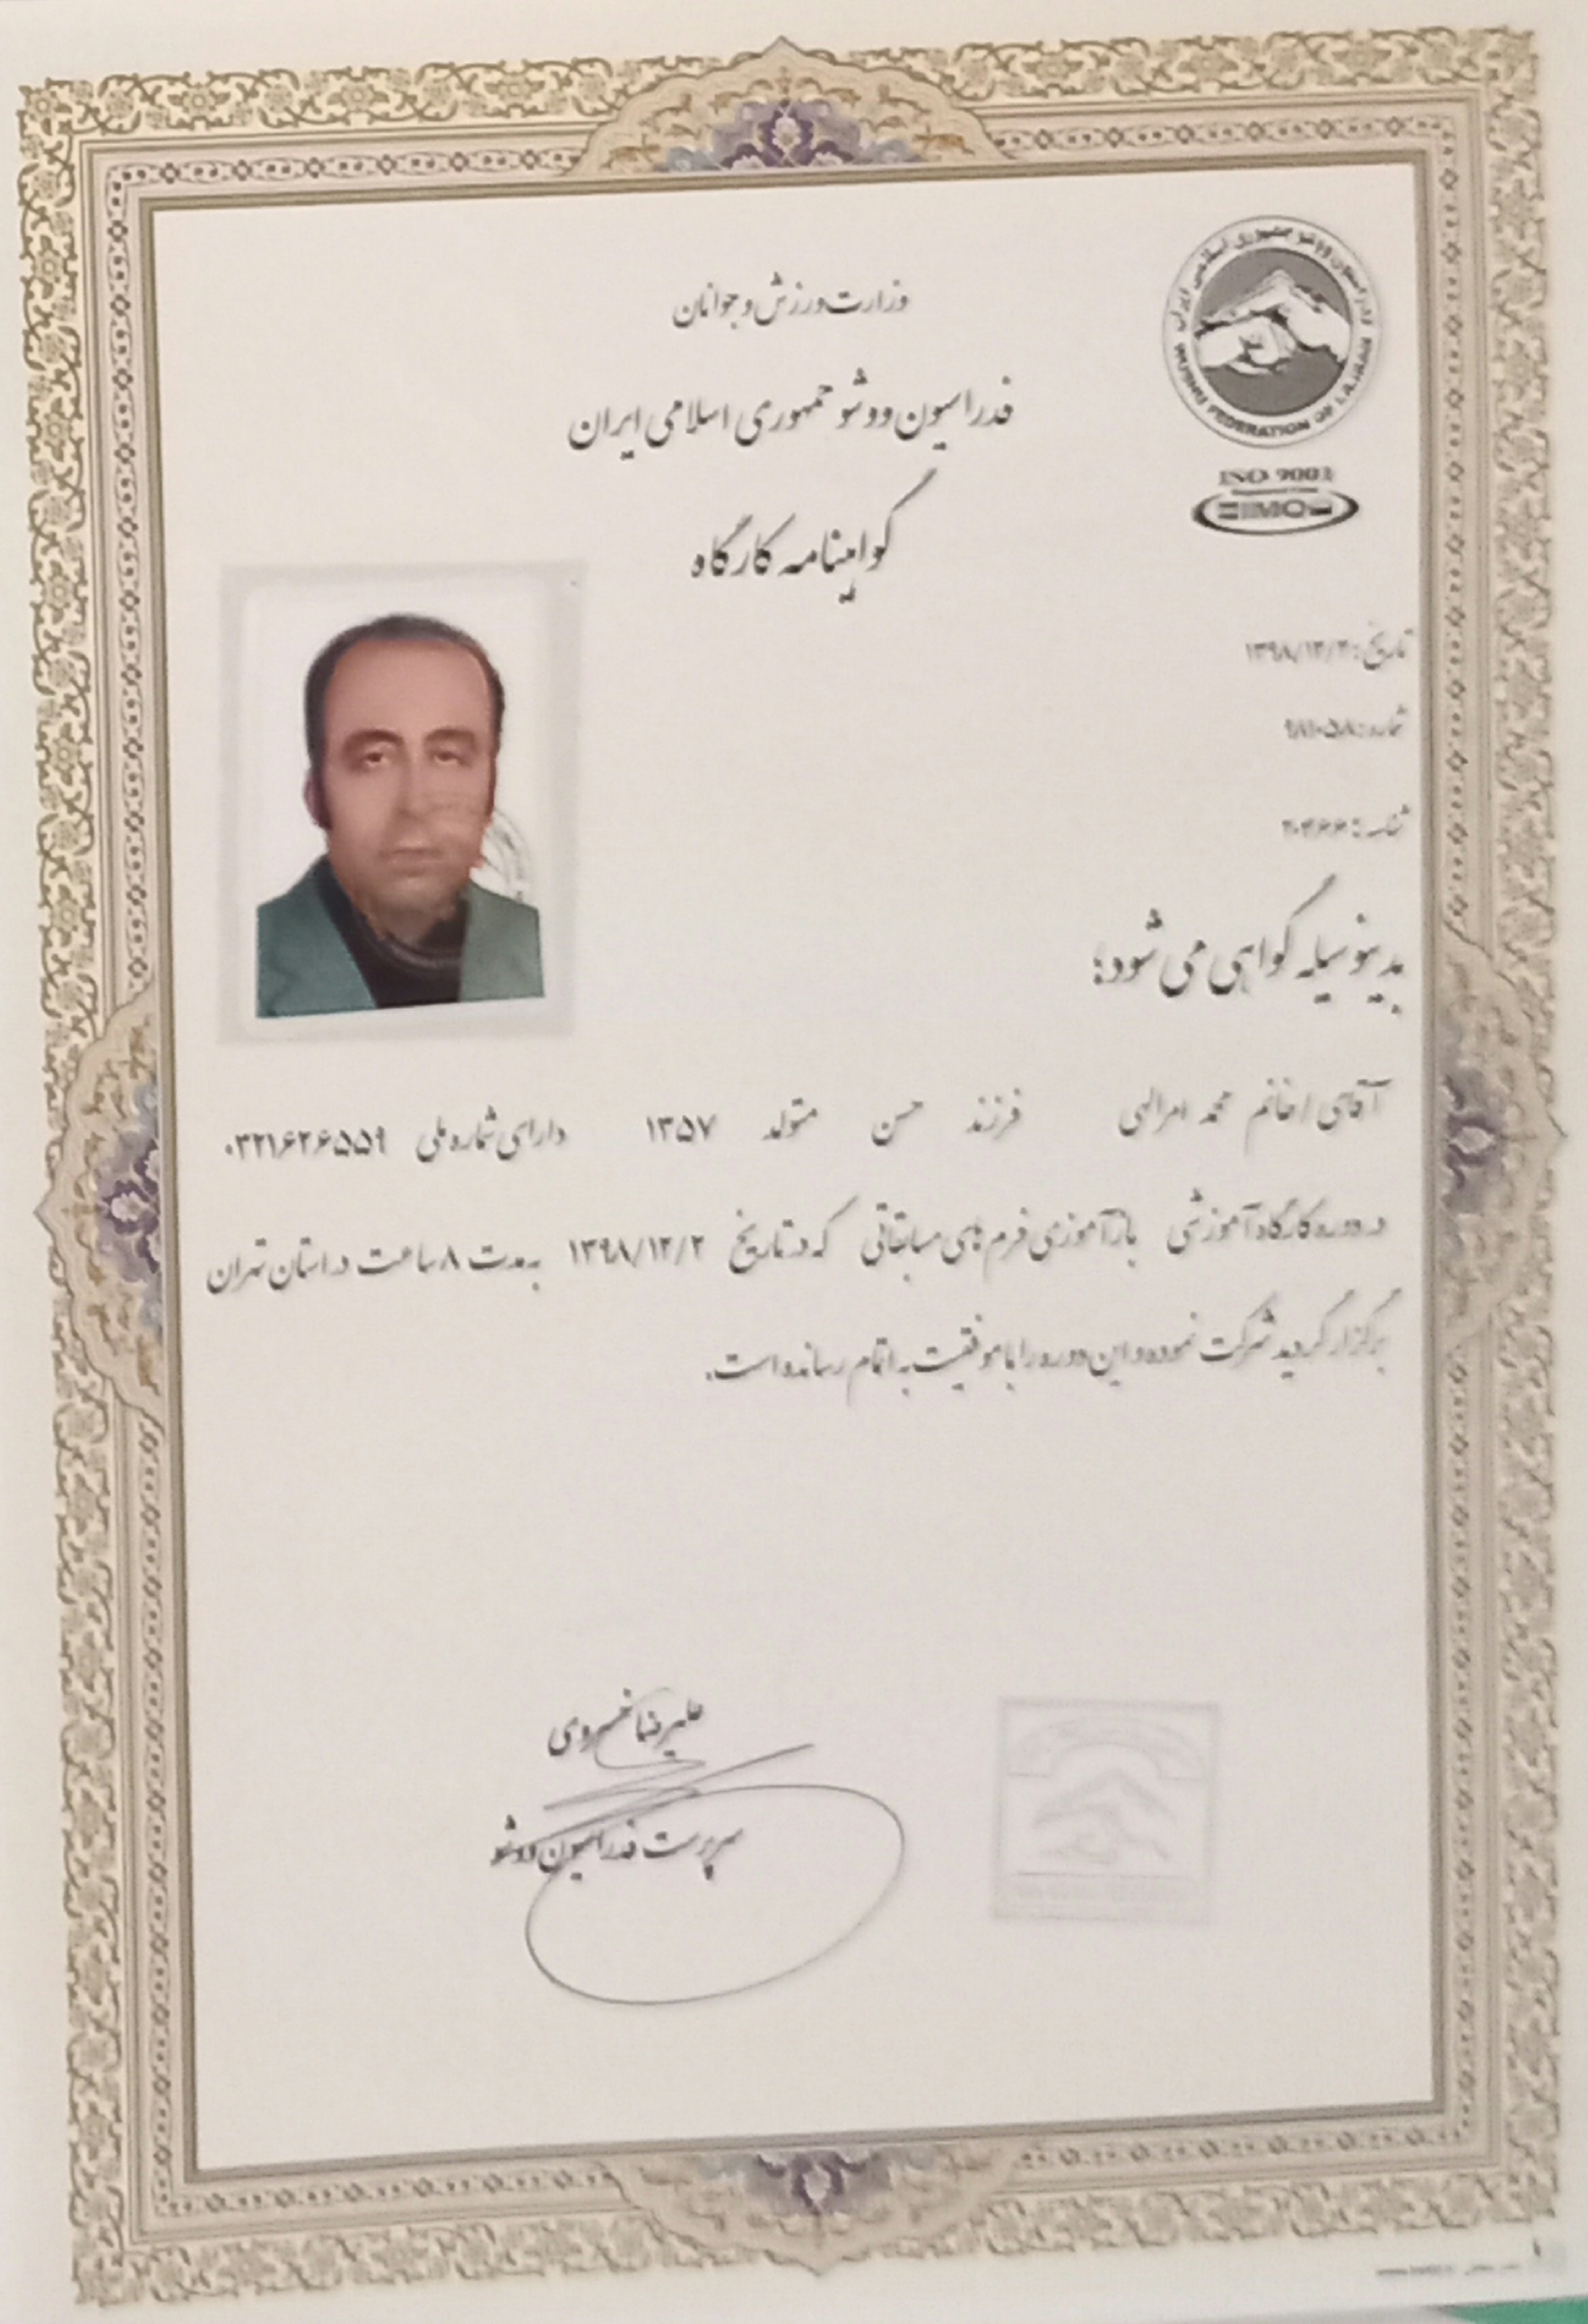 وزارت ورزش و جوانان
فدراسیون ووشو جمهوری اسلامی ایران
گواهینامه کارگاه
فدراسیون ووشو جمهوری اسلامی ایران
WUSHU FEDERATION OF I.R.IRAN
ISO 9001
تاریخ: ۱۳۹۸/۱۲/۲
شماره: ۹۸۱۰۵۸
شناسه:
بدینوسیله گواهی می شود:
آقای / خانم محمد امرالهی فرزند حسن متولد ۱۳۵۷ دارای شماره ملی ۰۳۲۱۶۲۶۵۵۹
در دوره کارگاه آموزشی بازآموزی فرم های مسابقاتی که در تاریخ ۱۳۹۸/۱۲/۲ به مدت ۸ ساعت در استان تهران
برگزار گردید شرکت نموده و این دوره را با موفقیت به اتمام رسانده است.
علیرضا خسروی
سرپرست فدراسیون ووشو